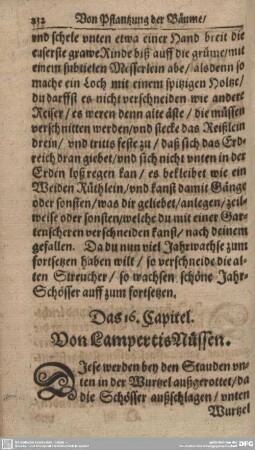 232 Von Pflantzung der Bäume/
vnd schele vnten etwa einer Hand breit die
euserste grawe Rinde biß auff die grüme/mit
einem subtielen Messerlein abe/alsdenn so
mache ein Loch mit einem spitzigen Holtze/
du darffst es nicht verschneiden wie andere
Reiser/es weren denn alte äste/die müssen
verschnitten werden/vnd stecke das Reißlein
drein/vnd tritts feste zu/daß sich das Erd-
reich dran giebet/vnd sich nicht vnten in der
Erden loß regen kan/es bekleibet wie ein
Weiden Rüthlein/vnd kanst damit Gänge
oder sonsten/was dir geliebet/anlegen/zeil-
weise oder sonsten/welche du mit einer Gar-
tenscheren verschneiden kanst/nach deinem
gefallen. Da du nun viel Jahrwachse zum
fortsetzen haben wilt/so verschneide die al-
ten Streucher/so wachsen schöne Jahr-
Schösser auff zum fortsetzen.
Das 16. Capitel.
Von Lampertis Nüssen.
DJese werden bey den Stauden vn-
ten in der Wurtzel außgerottet/da
die Schösser außschlagen/vnten
Wurtzel